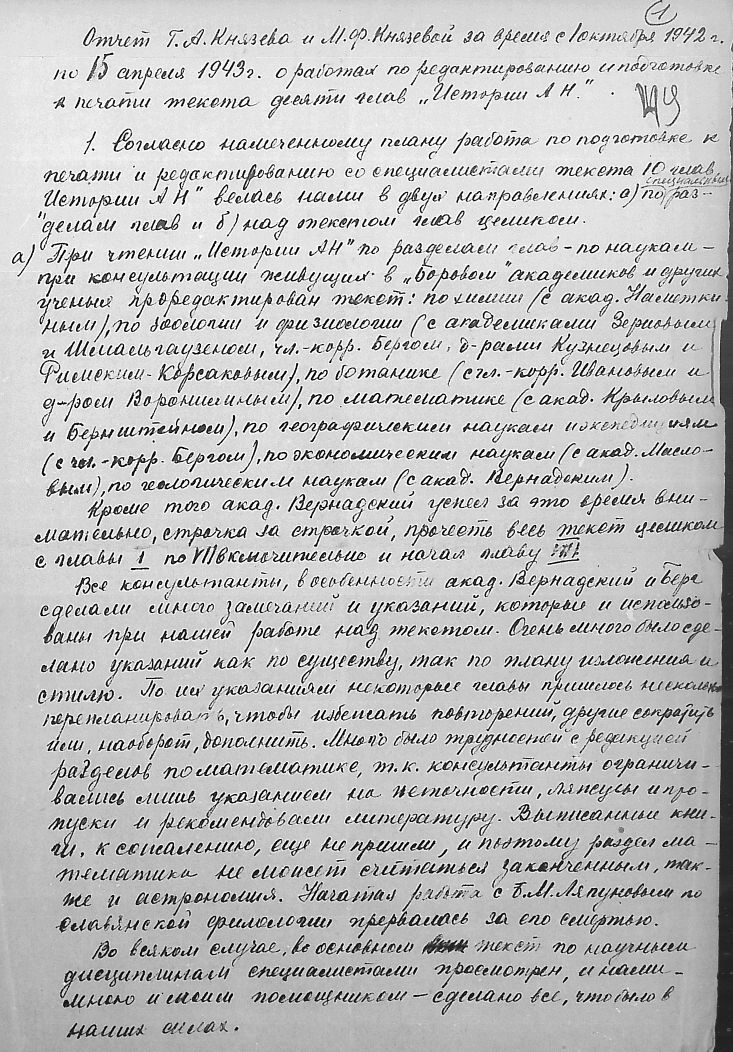 1
Отчет Г. А. Князева и М. Ф. Князевой за время с 1 октября 1942 г.
по 15 апреля 1943 г. о работах по редактированию и подготовке
к печати текста десяти глав „Истории АН".
1. Согласно намеченному плану работа по подготовке к
печати и редактированию со специалистами текста 10 глав
Истории АН" велась нами в двух направлениях: а) по специальным раз-
"делам глав и б) над текстом глав целиком.
а) При чтении „Истории АН" по разделам глав – по наукам –
при консультации живущих в „Боровом" академиков и других
ученых проредактирован текст: по химии (с акад. Наметки-
ным), по биологии и физиологии (с академиками Зерновым
и Шмальгаузеном, чл.-корр. Бергом, д-рами Кузнецовым и
Римским-Корсаковым), по ботанике (с чл.-корр. Ивановым и
д-ром Воронихиным), по математике (с акад. Крыловым
и Бернштейном), по географическим наукам и экспедициям
(с чл.-корр. Бергом), по экономическим наукам (с акад. Масло-
вым), по геологическим наукам (с акад. Вернадским).
Кроме того акад. Вернадский успел за это время вни-
мательно, строчка за строчкой, прочесть весь текст целиком
с главы I по VII включительно и начал главу VIII.
Все консультанты, в особенности акад. Вернадский и Берг
сделали много замечаний и указаний, которые и использо-
ваны при нашей работе над текстом. Очень много было сде-
лано указаний как по существу, так по плану изложения и
стилю. По их указаниям некоторые главы пришлось несколько
перепланировать, чтобы избежать повторений, другие сократить
или, наоборот, дополнить. Много было трудностей с редакцией
разделов по математике, т. к. консультанты ограничи-
вались лишь указанием на неточности, ляпсусы и про-
пуски и рекомендовали литературу. Выписанные кни-
ги, к сожалению, еще не пришли, и поэтому раздел ма-
тематика не может считаться законченным, так-
же и астрономия. Начатая работа с Б. М. Ляпуновым по
славянской филологии прервалась за его смертью.
Во всяком случае, в основном текст по научным
дисциплинам специалистами просмотрен, и нами –
мною и моим помощником – сделано все, что было в
наших силах.